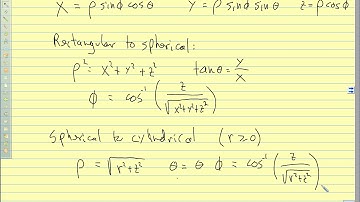 X = ρ sinϕ cosθ   Y = ρ sinϕ sinθ   z = ρ cosϕ
Rectangular to spherical:
ρ² = x² + y² + z²   tanθ = y/x
ϕ = cos⁻¹ ( z / √(x² + y² + z²) )
Spherical to cylindrical (r ≥ 0)
ρ = √(r² + z²)   θ = θ   ϕ = cos⁻¹ ( z / √(r² + z²) )